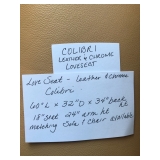 COLIBRI
LEATHER & CHROME
LOVESEAT
Love Seat - Leather & Chrome
Colibri
60"L x 32"D x 34" back
18" seat 24" arm ht
matching Sofa & Chair available